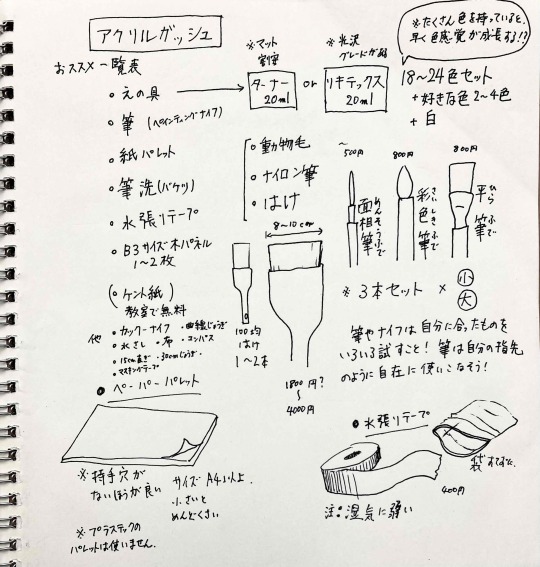 アクリルガッシュ
おススメ一覧表
※たくさん色を持っていると、
早く色感覚が成長する!?
※マット
割安
※光沢
グレードがある
・えの具
ターナー
20ml
or
リキテックス
20ml
18〜24色セット
+好きな色2〜4色
+白
・筆(ペインティングナイフ)
・紙パレット
・筆洗(バケツ)
・水張りテープ
・B3サイズ木パネル
1〜2枚
(ケント紙)
教室で無料
・動物毛
・ナイロン筆
・はけ
〜
500円
面相筆
めんそうふで
800円
彩色筆
さいしきふで
800円
平筆
ひらふで
8〜10cm
100均
はけ
1〜2本
1800円?
〜
4000円
※3本セット×小
大
筆やナイフは自分に合ったものを
いろいろ試すこと!筆は自分の指先
のように自在に使いこなそう!
他
・カッターナイフ ・曲線じょうぎ
・水さし ・布 ・コンパス
・15cm直ぎ ・30cmじょうぎ
・マスキングテープ
・ペーパーパレット
※持手穴が
ないほうが良い
サイズA4以上
小さいと
めんどくさい
※プラスチックの
パレットは使いません。
・水張りテープ
400円
注:湿気に弱い
袋すてずに。